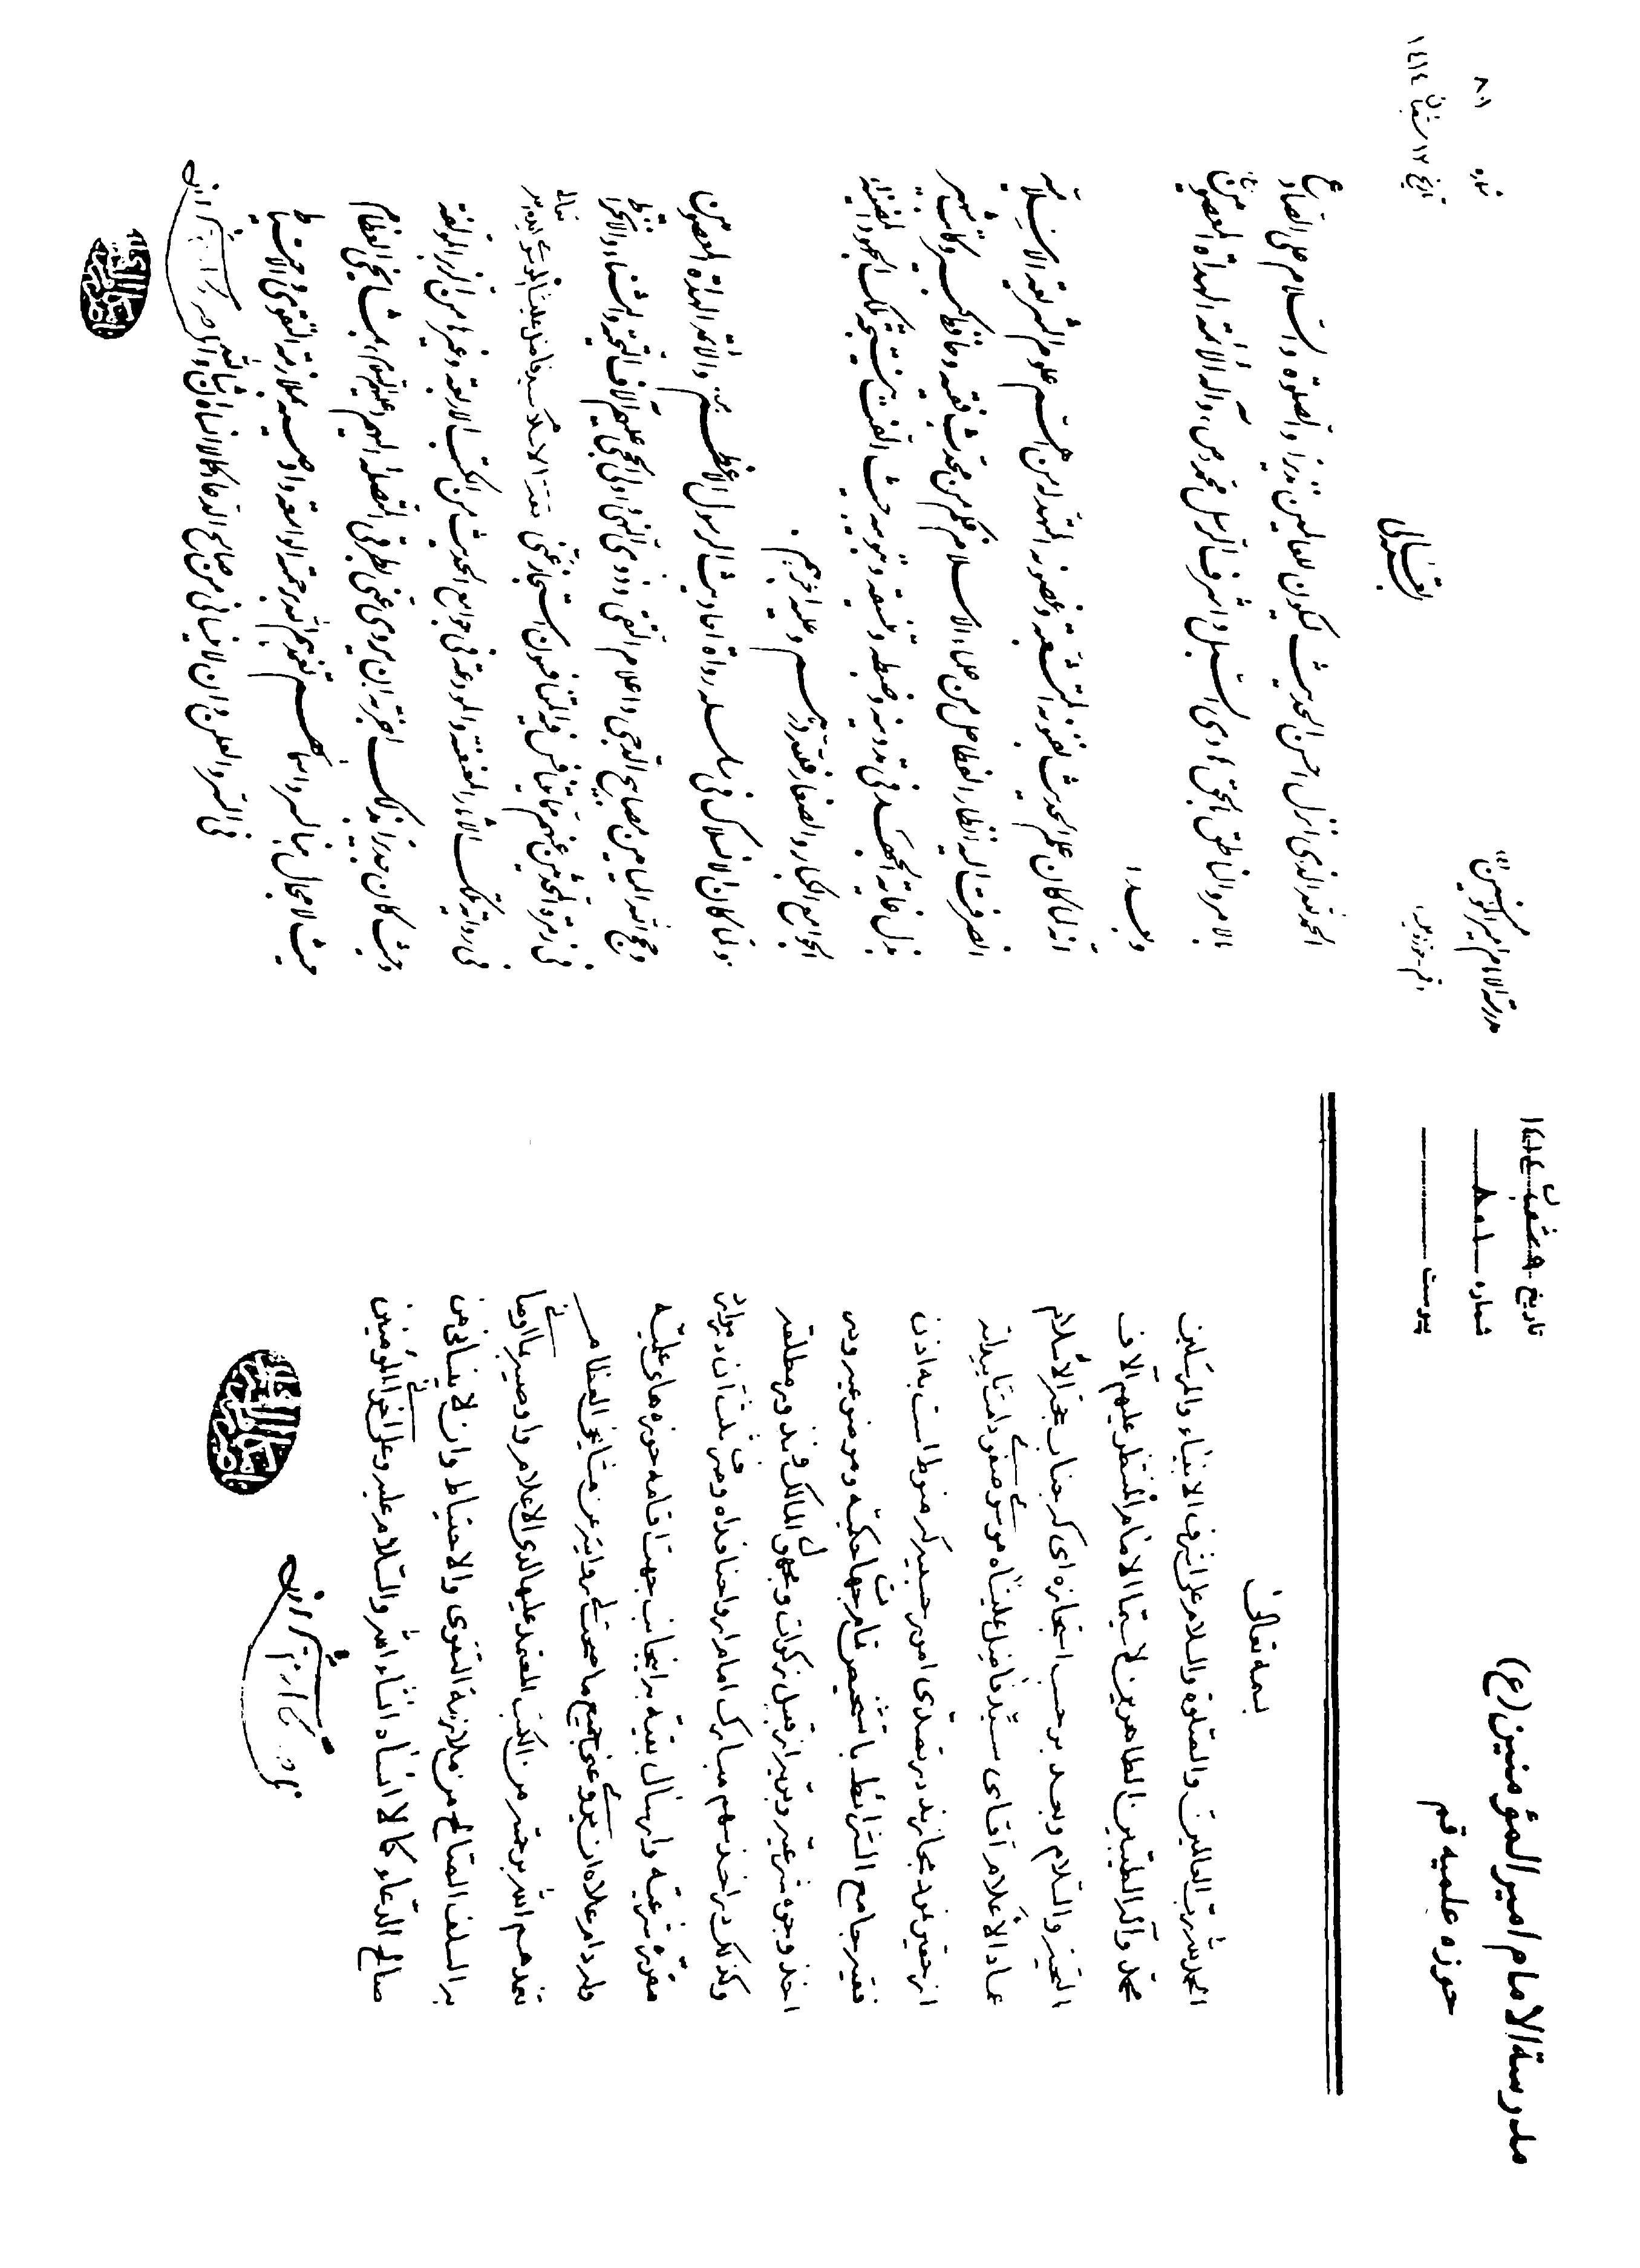 مدرسة الامام امیرالمؤمنین (ع)
حوزه علمیه قم
تاریخ شعبان ۱٤۱٤
شماره ۸۰۱
پیوست
بسمه تعالی
الحمد لله رب العالمین والصلوة والسلام علی اشرف الانبیاء والمرسلین
محمد وآله الطیبین الطاهرین لا سیما الامام المنتظر علیهم آلاف
التحیة والسلام وبعد بر حسب استجازه ای که جناب حجة الاسلام
عماد الأعلام آقای سید فاضل علینا موسوی صفوی دامت تأییداته
از حقیر نمود مجازند در تصدی امور حسبیه که منوط است به اذن
فقیر جامع الشرائط با تشخیص تام جهات حکمیه وموضوعیه ودر
اخذ وجوه شرعیه وبریه از قبیل زکوات ومجهول المالک ونذور مطلقه
وکذلک در اخذ سهم مبارک امام ارواحنا فداه وصرف ثلث آن در موارد
مقرره شرعیه وارسال بقیه به اینجانب جهت اقامه حوزه های علمیه
وله دام علاه ان یروی عنی جمیع ما صحت لی روایته عن مشایخی العظام
تغمدهم الله برحمته من الکتب المعتمد علیها لدی الاعلام واوصیه بما اوصانی
به السلف الصالح من ملازمة التقوی والاحتیاط وان لا ینسانی من
صالح الدعاء کما لا انساه انشاء الله والسلام علیه وعلی اخواننا المؤمنین
ناصر مکارم شیرازی
مدرسة الامام امیرالمؤمنین "ع"
قم - حوزه علمیه
شماره ۸۰۱
تاریخ ۱۲ شعبان ۱٤۱٤
بسمه تعالی
الحمد لله الذی انزل احسن الحدیث لیکون للعالمین نذیرا والصلوة والسلام علی الصادع
بالامر والناطق بالحق هادی السبل واشرف الرسل محمد (ص) وآله الائمة الهداة المعصومین
وبعد:
انه لما کان علم الحدیث لفنونه المتشعبة وغصونه المتهدلة من اهم علوم الشریعة الاسلامیة
انصرفت الیه انظار الفطاحل من علماء الاسلام فکم من محدث فقیه وحافظ کبیر وکاتب شهیر
بذل غایة الجهد فی تدوینه وضبطه وتنسیقه وتبویبه حیث الفت نتیجة تلک الجهود
الجوامع الکبار والصغار فلله درهم وعلیه اجرهم.
ولما کان الانسلاک فی سلسلة رواة احادیث الرسول الاعظم (ص) والائمة الهداة المعصومین
وحجج الله المیامین مصابیح الدجی واعلام التقی وذوی النهی واولی الحجی علیهم آلاف التحیة والثناء
فی زمرة المحدثین عنهم مما یتنافس فیه المتنافسون استجاز عنی ثقة الاسلام السید فاضل علینا الموسوی
فی روایة تلک الآثار المنقولة والمودعة فی جوامع الحدیث من الکتب الاربعة وغیرها من الزبر المؤلفة
وحیث کان جدیرا بذلک اجزته ان یروی عنی بالطرق المتصلة الیهم علیهم السلام بمشایخی العظام
حیث لا مجال هنا لسرد اسمائهم تغمدهم الله برحمته الواسعة واوصیه بملازمة التقوی والاحتیاط
فی السر والعلن وان لا ینسانی من صالح الدعاء کما لا انساه ان شاء الله
ناصر مکارم شیرازی